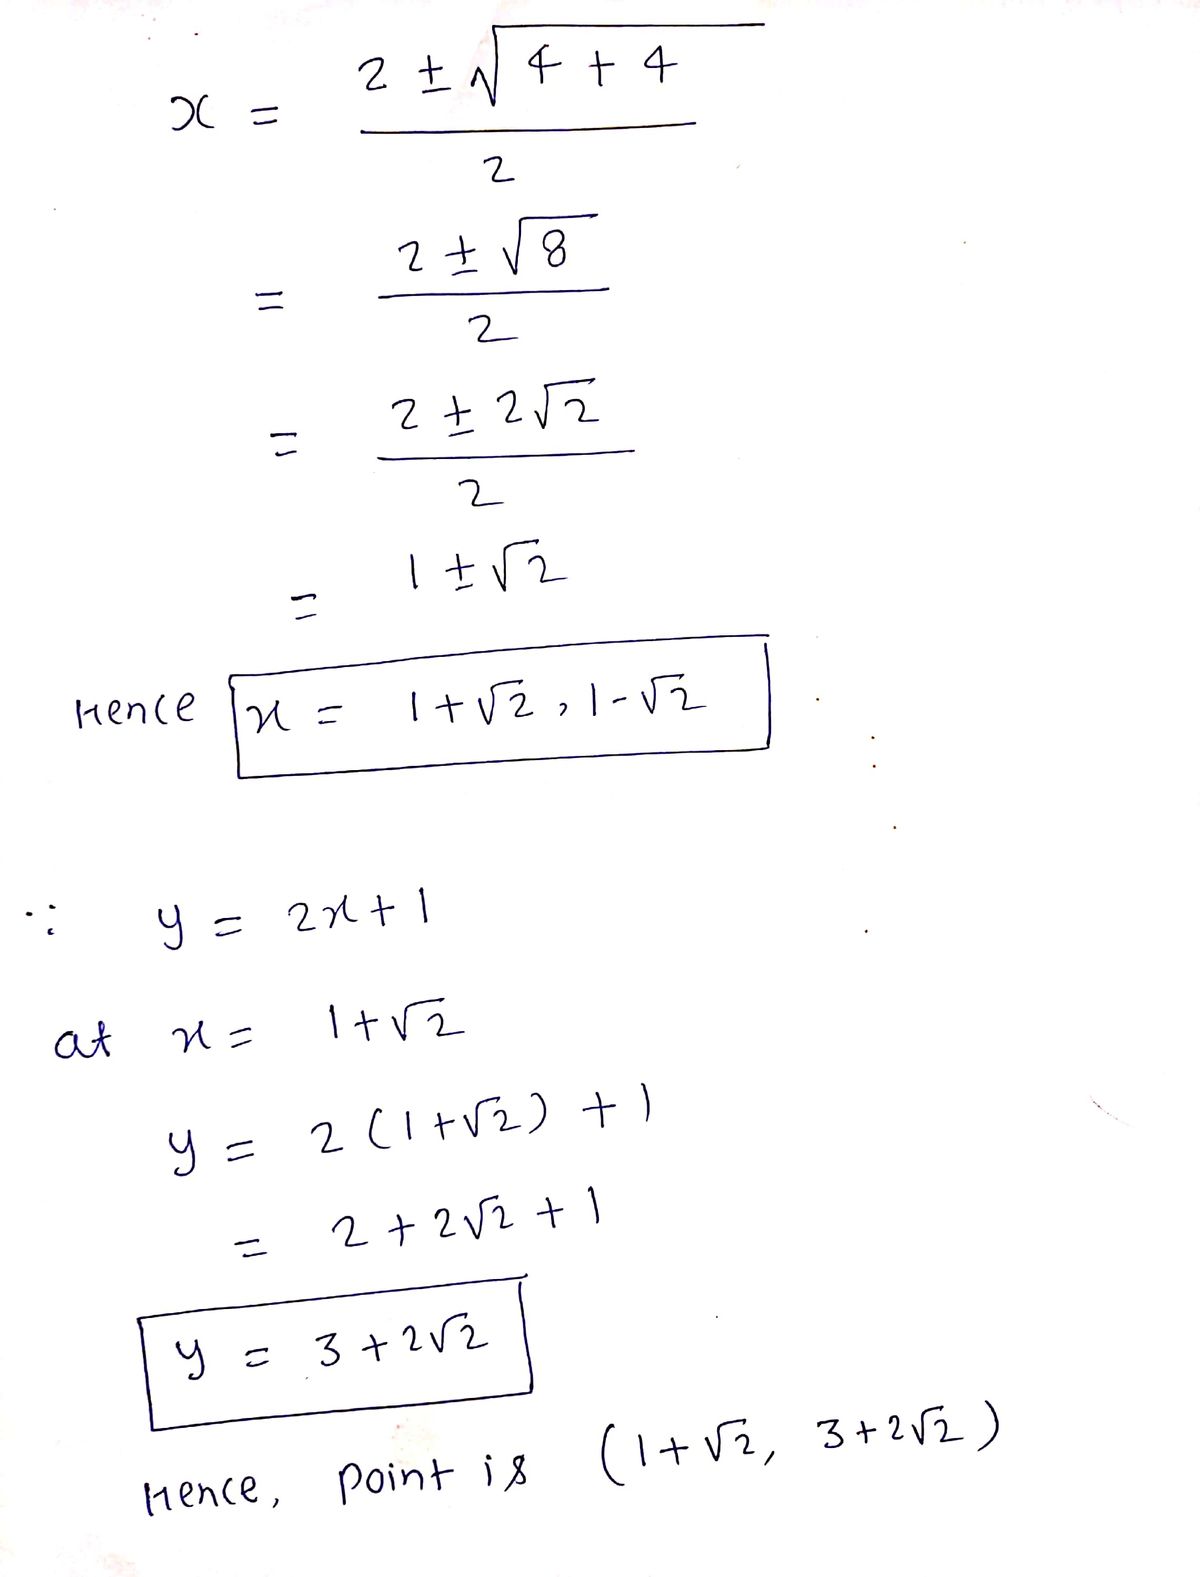 x = 2 ± √4 + 4
2
= 2 ± √8
2
= 2 ± 2√2
2
= 1 ± √2
Hence x = 1+√2 , 1-√2
∵ y = 2x+1
at x = 1+√2
y = 2 (1+√2) + 1
= 2 + 2√2 + 1
y = 3 + 2√2
Hence, point is (1+√2, 3+2√2)